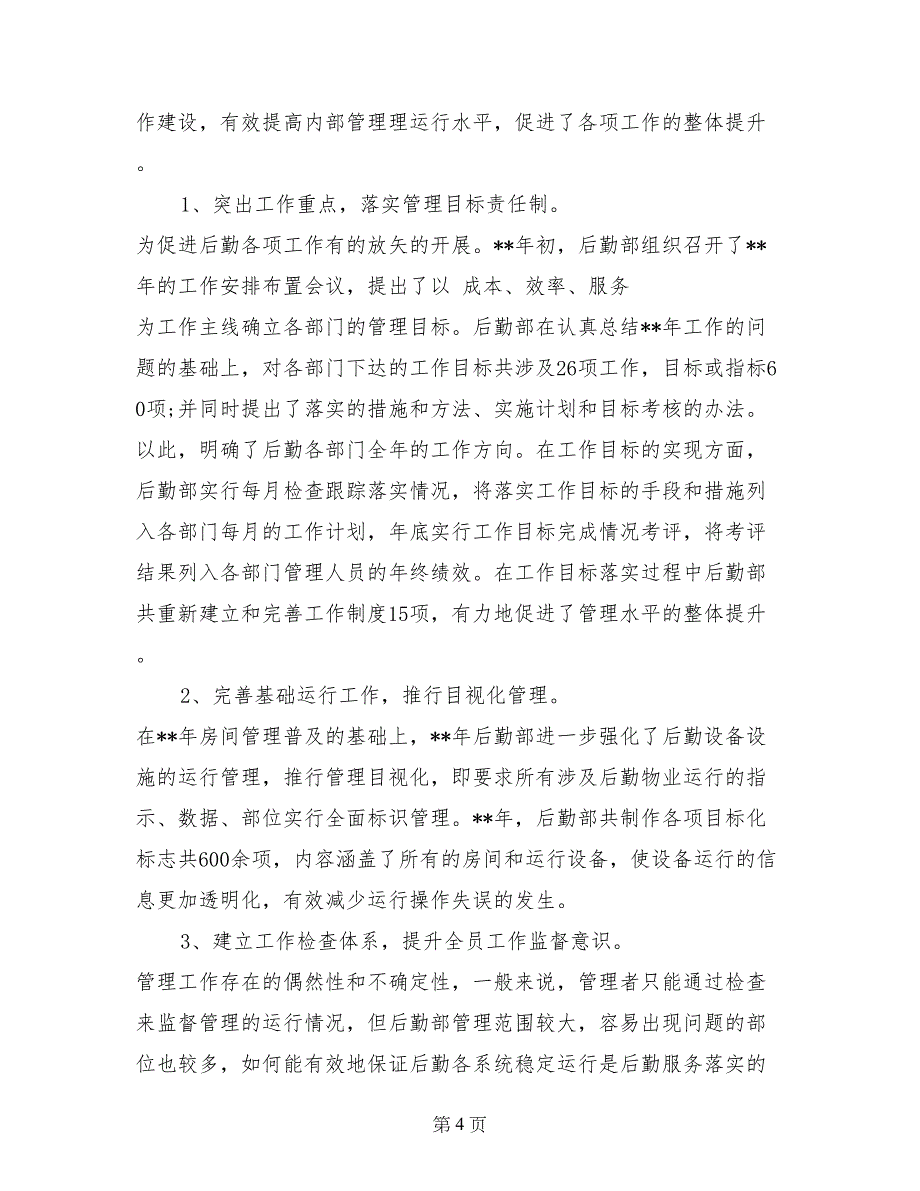 作建设，有效提高内部管理理运行水平，促进了各项工作的整体提升
。
1、突出工作重点，落实管理目标责任制。
为促进后勤各项工作有的放矢的开展。**年初，后勤部组织召开了**
年的工作安排布置会议，提出了以 成本、效率、服务
为工作主线确立各部门的管理目标。后勤部在认真总结**年工作的问
题的基础上，对各部门下达的工作目标共涉及26项工作，目标或指标6
0项;并同时提出了落实的措施和方法、实施计划和目标考核的办法。
以此，明确了后勤各部门全年的工作方向。在工作目标的实现方面，
后勤部实行每月检查跟踪落实情况，将落实工作目标的手段和措施列
入各部门每月的工作计划，年底实行工作目标完成情况考评，将考评
结果列入各部门管理人员的年终绩效。在工作目标落实过程中后勤部
共重新建立和完善工作制度15项，有力地促进了管理水平的整体提升
。
2、完善基础运行工作，推行目视化管理。
在**年房间管理普及的基础上，**年后勤部进一步强化了后勤设备设
施的运行管理，推行管理目视化，即要求所有涉及后勤物业运行的指
示、数据、部位实行全面标识管理。**年，后勤部共制作各项目标化
标志共600余项，内容涵盖了所有的房间和运行设备，使设备运行的信
息更加透明化，有效减少运行操作失误的发生。
3、建立工作检查体系，提升全员工作监督意识。
管理工作存在的偶然性和不确定性，一般来说，管理者只能通过检查
来监督管理的运行情况，但后勤部管理范围较大，容易出现问题的部
位也较多，如何能有效地保证后勤各系统稳定运行是后勤服务落实的
第 4 页